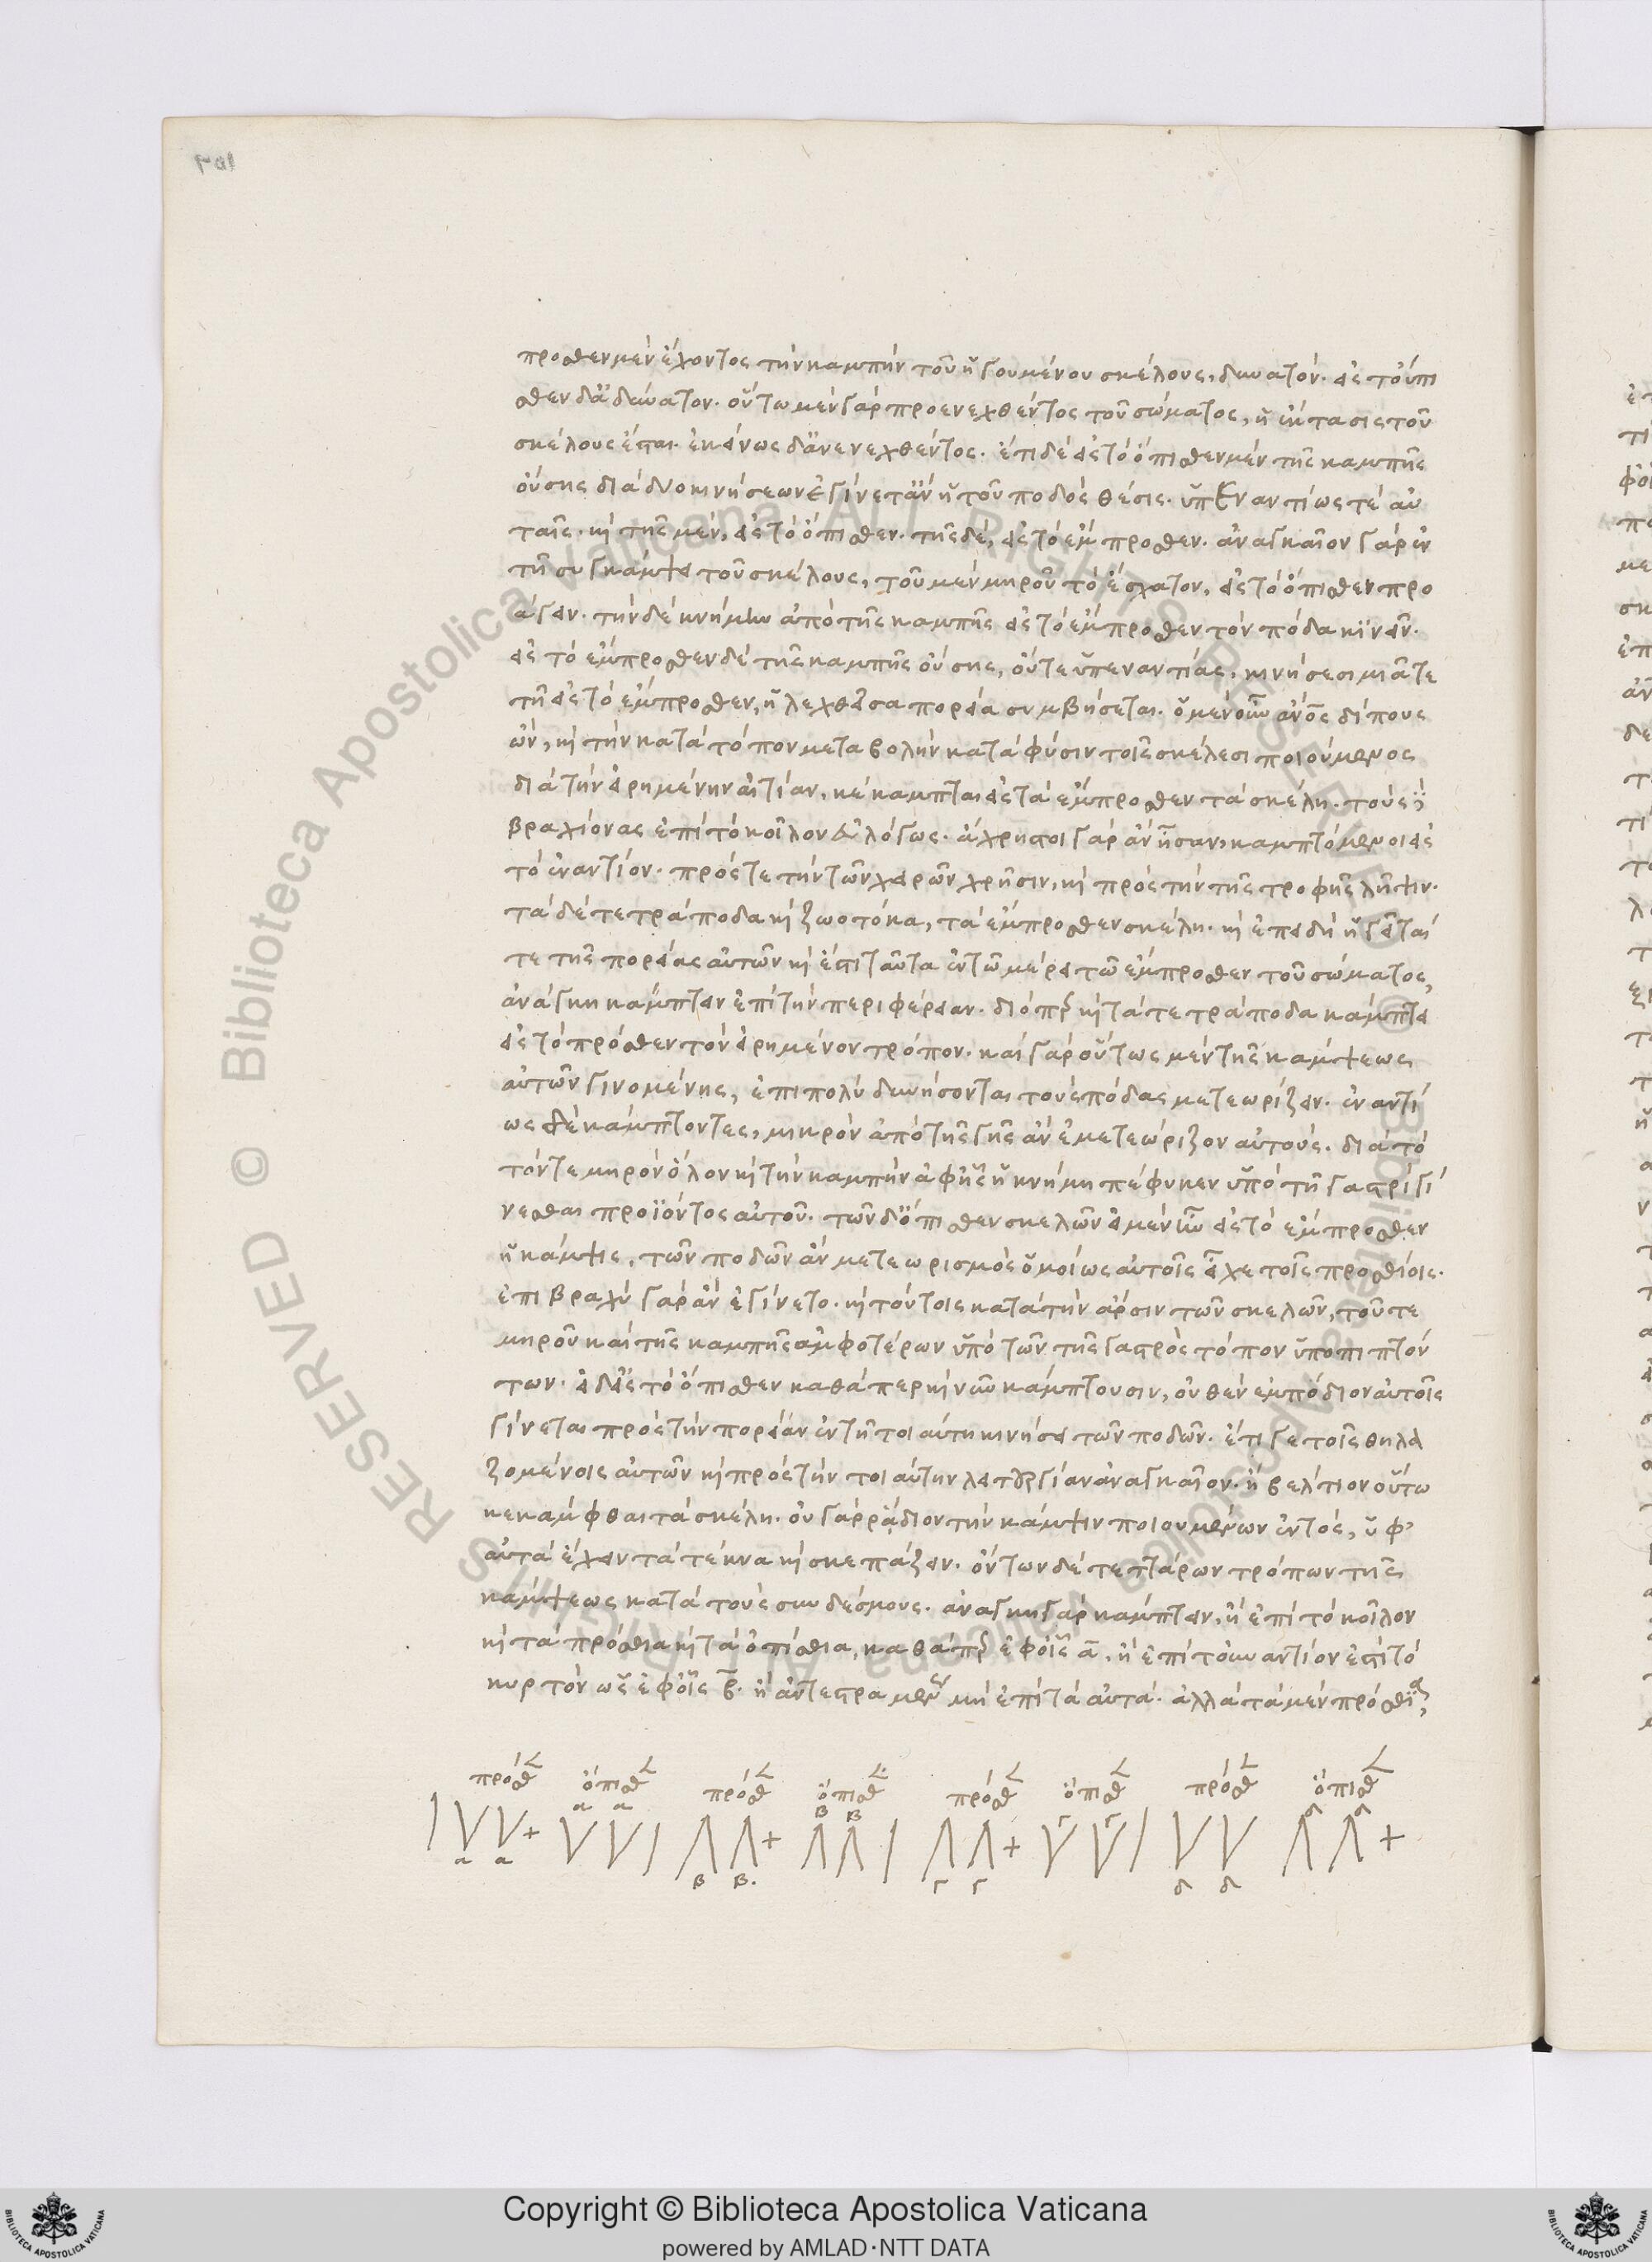 προσθεν μὲν ἔχοντος τὴν καμπὴν τοῦ ἡγουμένου σκέλους, δυνατόν. εἰς τοὔπι
σθεν δ' ἀδύνατον. οὕτω μὲν γὰρ προενεχθέντος τοῦ σώματος, ἡ ἔκτασις τοῦ
σκέλους ἔσται. ἐκείνως δ' ἀνενεχθέντος. ἔτι δὲ εἰς τὸ ὄπισθεν μὲν τῆς καμπῆς
οὔσης διὰ δύο κινήσεων ἐγίνετ' ἂν ἡ τοῦ ποδὸς θέσις. ὑπεναντίως τὲ αὑ
ταῖς. κ τῆς μὲν, εἰς τὸ ὄπισθεν. τῆς δὲ, εἰς τὸ ἔμπροσθεν. ἀναγκαῖον γὰρ ἐν
τῇ συγκάμψει τοῦ σκέλους, τοῦ μὲν μηροῦ τὸ ἔσχατον, εἰς τὸ ὄπισθεν προ
άγειν. τὴν δὲ κνήμην ἀπὸ τῆς καμπῆς εἰς τὸ ἔμπροσθεν τὸν πόδα κινεῖν.
εἰς τὸ ἔμπροσθεν δὲ τῆς καμπῆς οὔσης, οὔτε ὑπεναντίας, κινήσεσι μιᾶ τε
τῇ εἰς τὸ ἔμπροσθεν, ἡ λεχθεῖσα πορεία συμβήσεται. ὁ μὲν οὖν ἄνος δίπους
ὢν, κ τὴν κατὰ τόπον μεταβολὴν κατὰ φύσιν τοῖς σκέλεσι ποιούμενος
διὰ τὴν εἰρημένην αἰτίαν, κέκαμπται εἰς τὰ ἔμπροσθεν τὰ σκέλη. τοὺς
βραχίονας ἐπὶ τὸ κοῖλον εὐλόγως. ἄχρηστοι γὰρ ἂν ἦσαν, καμπτόμενοι εἰς
τὸ ἐναντίον. πρός τε τὴν τῶν χειρῶν χρῆσιν, κ πρὸς τὴν τῆς τροφῆς λῆψιν.
τὰ δὲ τετράποδα κ ζωοτόκα, τὰ ἔμπροσθεν σκέλη. κ ἐπειδὴ ἡγεῖταί
τε τῆς πορείας αὐτῶν κ ἔστι ταῦτα ἐν τῷ μέρει τῷ ἔμπροσθεν τοῦ σώματος,
ἀνάγκη κάμπτειν ἐπὶ τὴν περιφέρειαν. διόπερ κ τὰ τετράποδα κάμπτει
εἰς τὸ πρόσθεν τὸν εἰρημένον τρόπον. καὶ γὰρ οὕτως μὲν τῆς κάμψεως
αὐτῶν γινομένης, ἐπιπολὺ δυνήσονται τοὺς πόδας μετεωρίζειν. ἐναντί
ως δὲ κάμπτοντες, μικρὸν ἀπὸ τῆς γῆς ἂν ἐμετεώριζον αὐτούς. διὰ τὸ
τόν τε μηρὸν ὅλον κ τὴν καμπὴν ἀφ' ἧς ἡ κνήμη πέφυκεν ὑπὸ τῇ γαστρὶ γί
νεσθαι προϊόντος αὐτοῦ. τῶν δ' ὄπισθεν σκελῶν εἰ μὲν ἦν εἰς τὸ ἔμπροσθεν
ἡ κάμψις, τῶν ποδῶν ἂν μετεωρισμὸς ὁμοίως αὐτοῖς εἶχε τοῖς προσθίοις.
ἐπὶ βραχὺ γὰρ ἂν ἐγίνετο. κ τούτοις κατὰ τὴν ἄρσιν τῶν σκελῶν, τοῦ τε
μηροῦ καὶ τῆς καμπῆς ἀμφοτέρων ὑπὸ τῶν τῆς γαστρὸς τόπον ὑποπιπτόν
των. εἰ δ' εἰς τὸ ὄπισθεν καθάπερ κ νῦν κάμπτουσιν, οὐθὲν ἐμπόδιον αὐτοῖς
γίνεται πρὸς τὴν πορείαν ἐν τῇ τοιαύτῃ κινήσει τῶν ποδῶν. ἔτι γε τοῖς θηλα
ζομένοις αὐτῶν κ πρὸς τὴν τοιαύτην λειτουργίαν ἀναγκαῖον. ἢ βέλτιον οὕτω
κεκάμφθαι τὰ σκέλη. οὐ γὰρ ῥᾴδιον τὴν κάμψιν ποιουμένων ἐντός, ὑφ'
αὑτὰ ἔχειν τὰ τέκνα κ σκεπάζειν. ὄντων δὲ τεττάρων τρόπων τῆς
κάμψεως κατὰ τοὺς συνδέσμους. ἀνάγκη γὰρ κάμπτειν, ἢ ἐπὶ τὸ κοῖλον
κ τὰ πρόσθια κ τὰ ὀπίσθια, καθάπερ ἐφ' οἷς α, ἢ ἐπὶ τὸ ἐναντίον ἐπὶ τὸ
κυρτὸν ὡς ἐφ' οἷς β. ἢ ἀντεστραμμένως μὴ ἐπὶ τὰ αὐτά. ἀλλὰ τὰ μὲν πρόσθια,
πρόσθ ὄπισθ πρόσθ ὄπισθ πρόσθ ὄπισθ πρόσθ ὄπισθ
α α β β γ γ
α α β β. γ γ δ δ
Copyright © Biblioteca Apostolica Vaticana
powered by AMLAD·NTT DATA
© Biblioteca Apostolica Vaticana ALL RIGHTS RESERVED